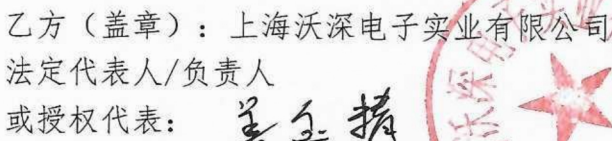 乙方（盖章）：上海沃深电子实业有限公司
法定代表人/负责人
或授权代表：
沃深电子实